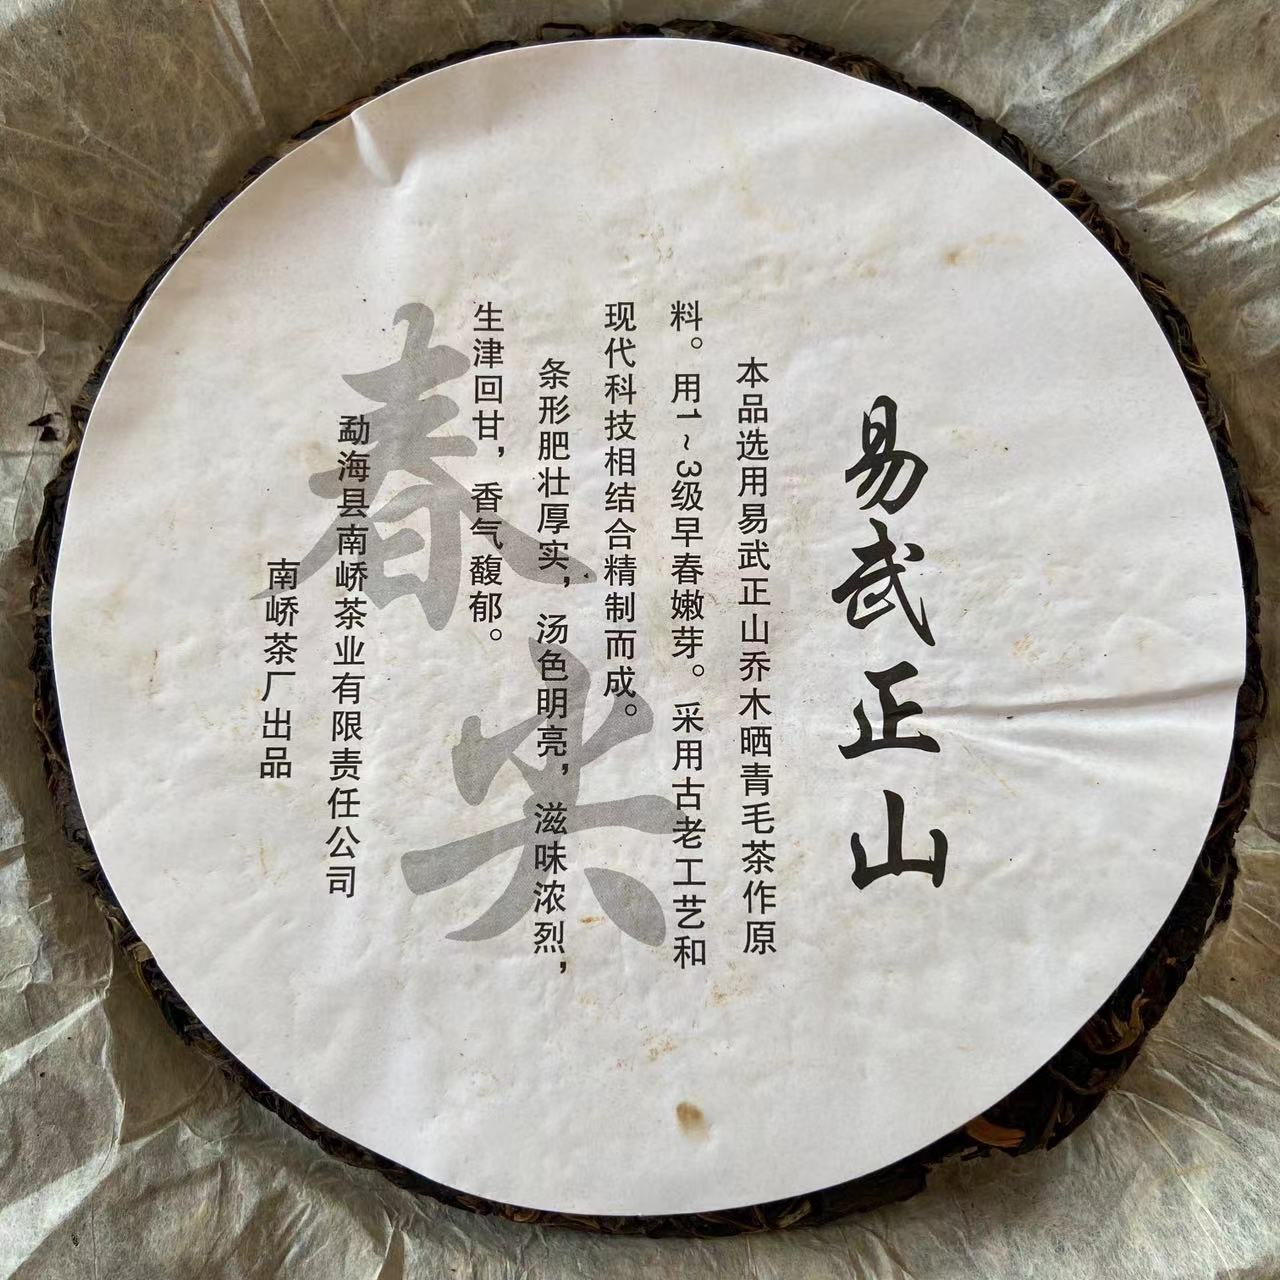 易武正山
本品选用易武正山乔木晒青毛茶作原
料。用1～3级早春嫩芽。采用古老工艺和
现代科技相结合精制而成。
条形肥壮厚实，汤色明亮，滋味浓烈，
生津回甘，香气馥郁。
春尖
勐海县南峤茶业有限责任公司
南峤茶厂出品